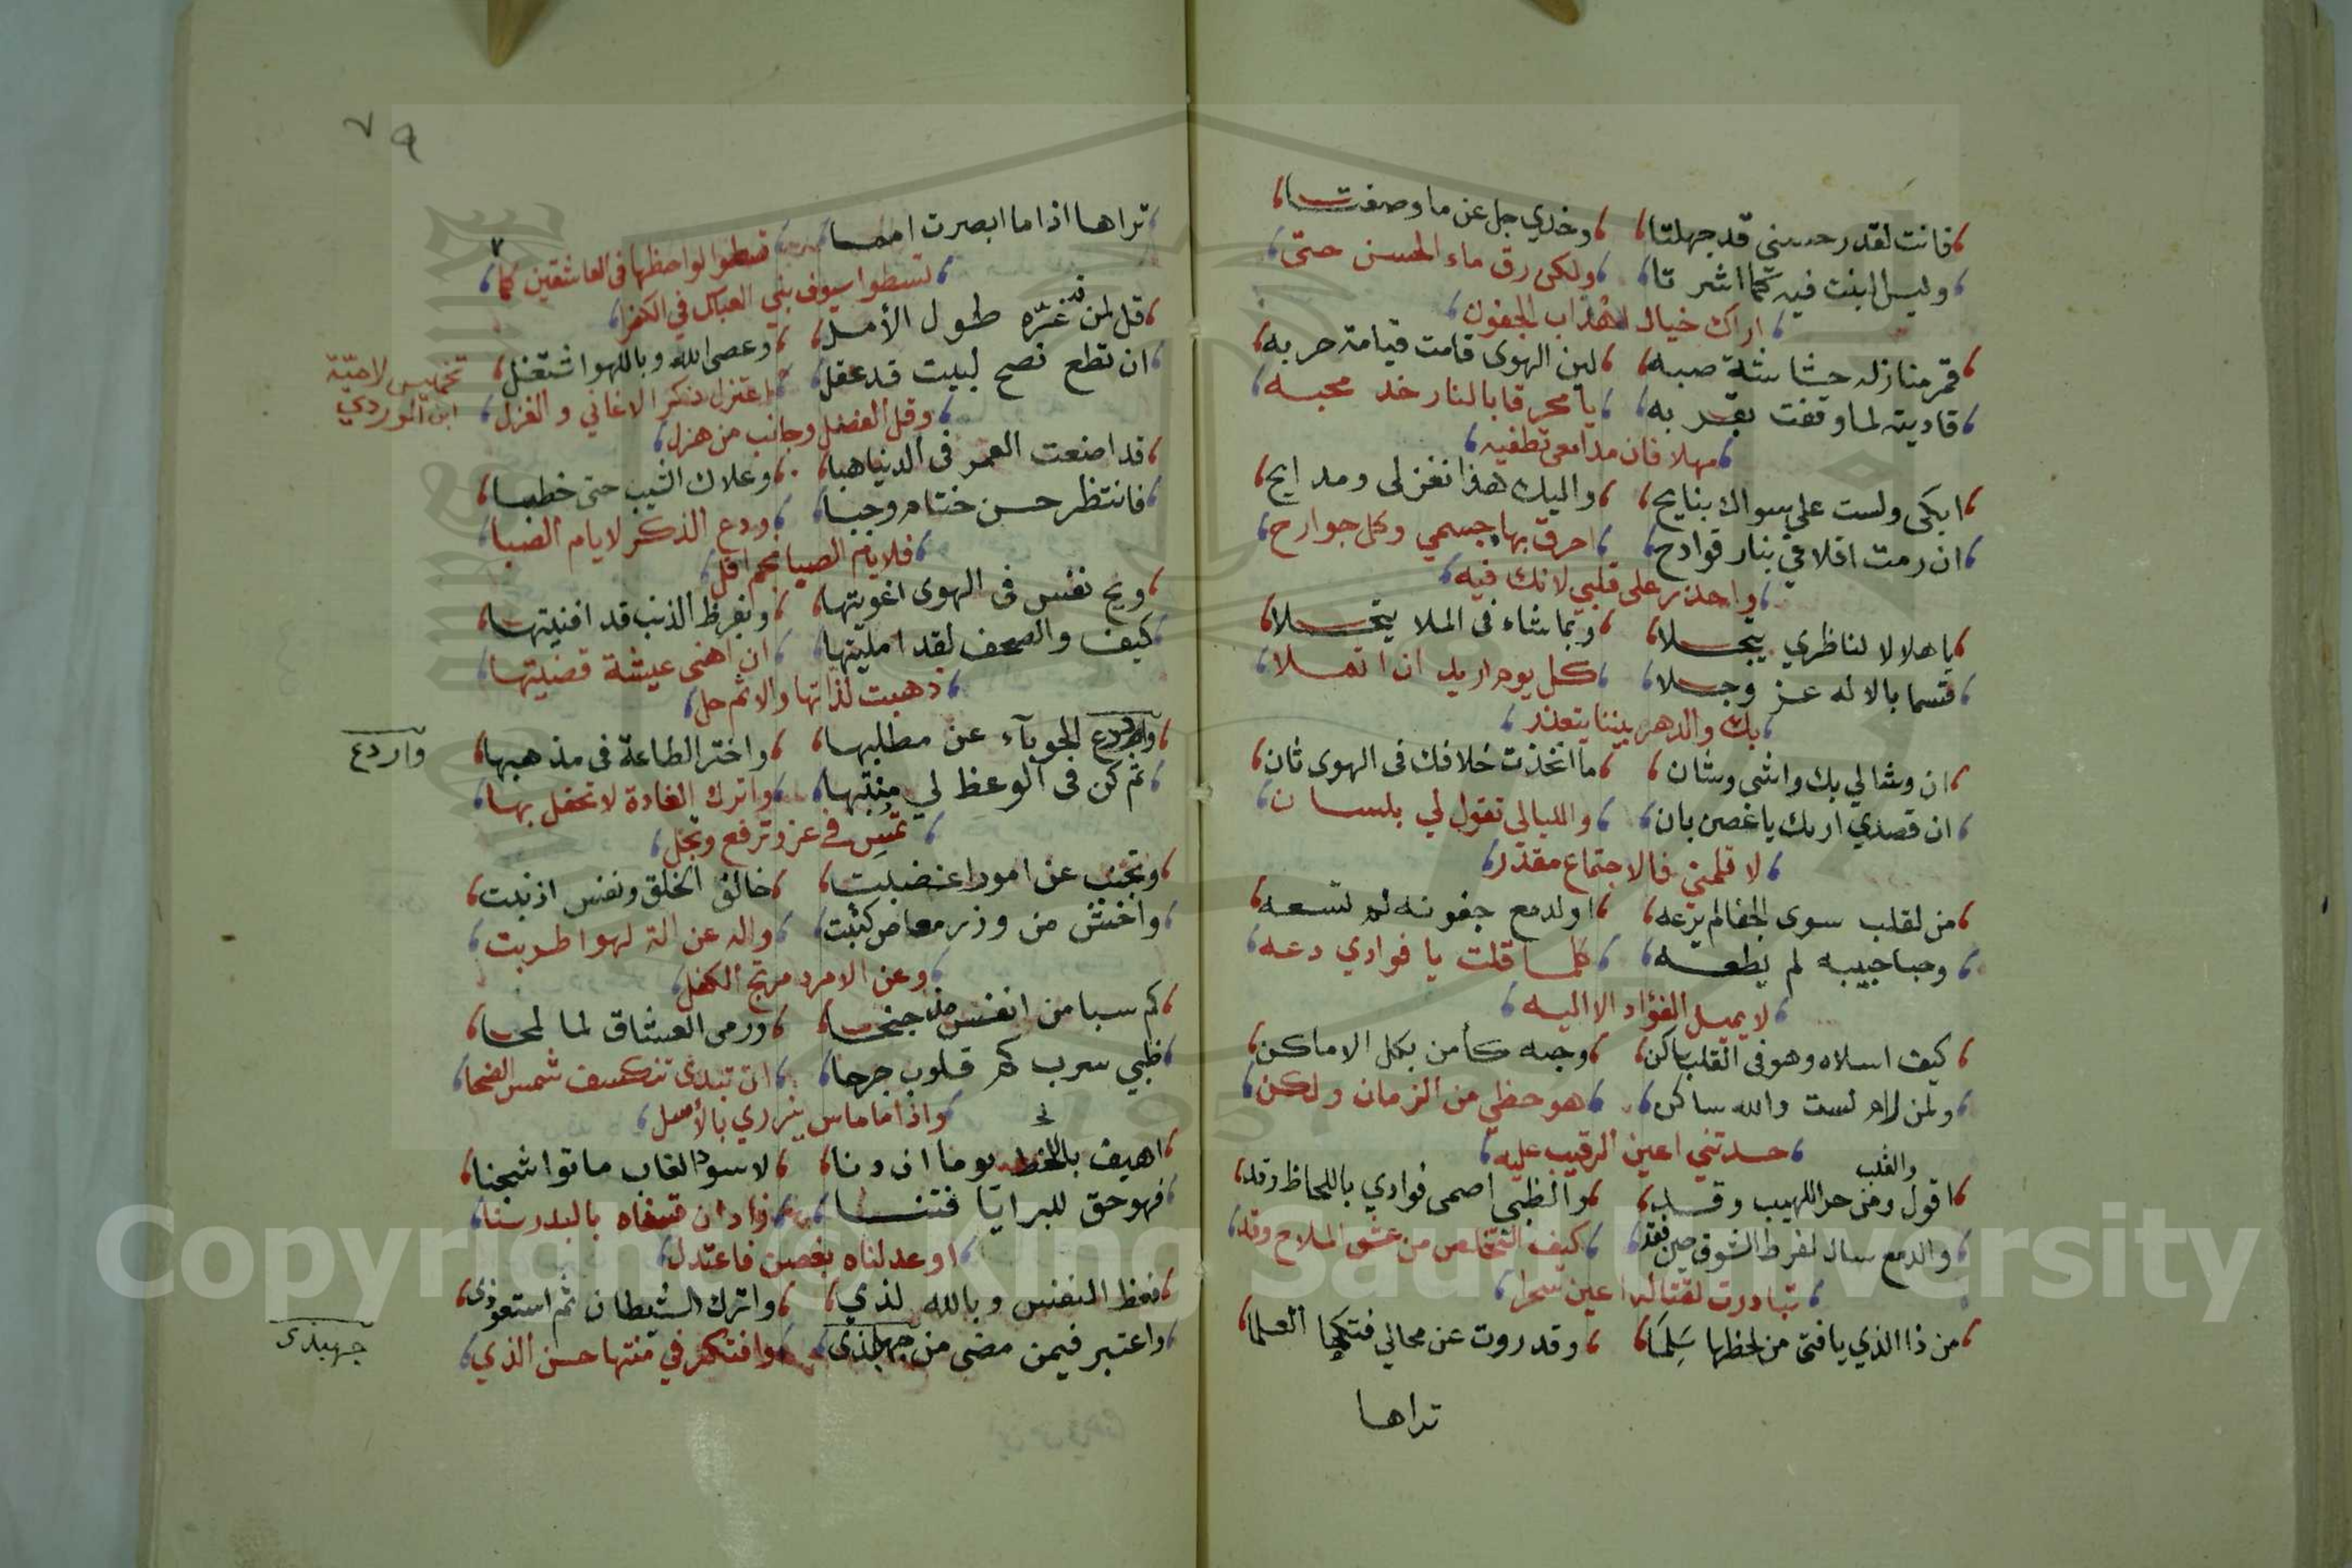 فانت لقدر حسني قد جهلتا وخدي جل عن ما وصفتا
وليس البنت فيه كما اشرتا ولكن رق ماء الحسن حتى
اراك خيال اهداب الجفون
قمر منازله حشاشة صبه لمن الهوى قامت قيامة حربه
ناديته لما وقفت بقربه يا محرقا بالنار خد محبه
مهلا فان مدامعي تطفيه
ابكى ولست على سواك بنايح واليك هذا تغزلى ومدايح
ان رمت اقلاقي بنار قوادح احرق بها جسمي وكل جوارح
واحذر على قلبي لانك فيه
يا هلالا لناظري يتجلا وبما شاء فى الملا يتحلا
قسما بالاله عز وجلا كل يوم اريد ان اتملا
بك والدهر بيننا يتعذر
ان وشا لي بك واشى وشان ما اتخذت خلافك فى الهوى ثان
ان قصدي اراك يا غصن بان والليالي تقول لي بلسان
لا تلمني فالاجتماع مقدر
من لقلب سوى الجفا لم يرعه او لدمع جفونه لم تسعه
وجبا حبيبه لم يطعه كلما قلت يا فوادي دعه
لا يميل الفؤاد الا اليه
كيف اسلاه وهو فى القلب ساكن وجهه كأمن بكل الاماكن
ولمن لام لست والله ساكن هو حظي من الزمان ولكن
حسدتني اعين الرقيب عليه
والقلب
اقول ومن حر اللهيب وقد والظبي اصمى فوادي باللحاظ وقد
والدمع سال لفرط الشوق حين فقد كيف التخلص من عشق الملاح وقد
تبادرت لقتالي اعين سحرا
من ذا الذي يا فتى من لحظها سلما وقد روت عن محالي فتكها العلما
تراها
٧٩
تراها اذا ما ابصرت امما تسطوا لواحظها فى العاشقين كما
تسطوا سيوف بني العباس في الكفرا
قل لمن قد غره طول الأمل وعصى الله وباللهو اشتغل
تخميس لامية
ابن الوردي
ان تطع نصح لبيت قد عقل اعتزل ذكر الاغاني والغزل
وقل الفضل وجانب من هزل
قد اضعت العمر فى الدنيا هبا وعلاك الشيب حتى خطبا
فانتظر حسن ختام وجبا ودع الذكر لايام الصبا
فلايام الصبا نجم افل
ويح نفس فى الهوى اغويتها وبفرط الذنب قد افنيتها
كيف والصحف لقد امليتها ان اهنى عيشة قضيتها
ذهبت لذاتها والاثم حل
واردع الحوبآء عن مطلبها واختر الطاعة فى مذهبها
واردع
ثم كن فى الوعظ لي منتبها واترك الغادة لا تحفل بها
تمس في عز وترفع وتجل
وتجنب عن امور اغضبت خالق الخلق ونفس اذنبت
واخش من وزر معاص كتبت واله عن الة لهو اطربت
وعن الامرد مرتج الكفل
كم سبا من انفس مذ جنحا ورمى العشاق لما لمحا
ظبي سرب كم قلوب جرحا ان تبدى تنكسف شمس الضحا
واذا ما ماس يزري بالأسل
اهيف باللحظ يوما ان دنا لاسود الغاب ماتوا شجنا
فهو حق للبرايا فتنا زاد ان قسناه بالبدر سنا
او عدلناه بغصن فاعتدل
فعظ النفس وبالله لذي واترك الشيطان ثم استعوذى
واعتبر فيمن مضى من جهبذى وافتكر في منتها حسن الذي
جهبذى
Copyright © King Saud University
1957